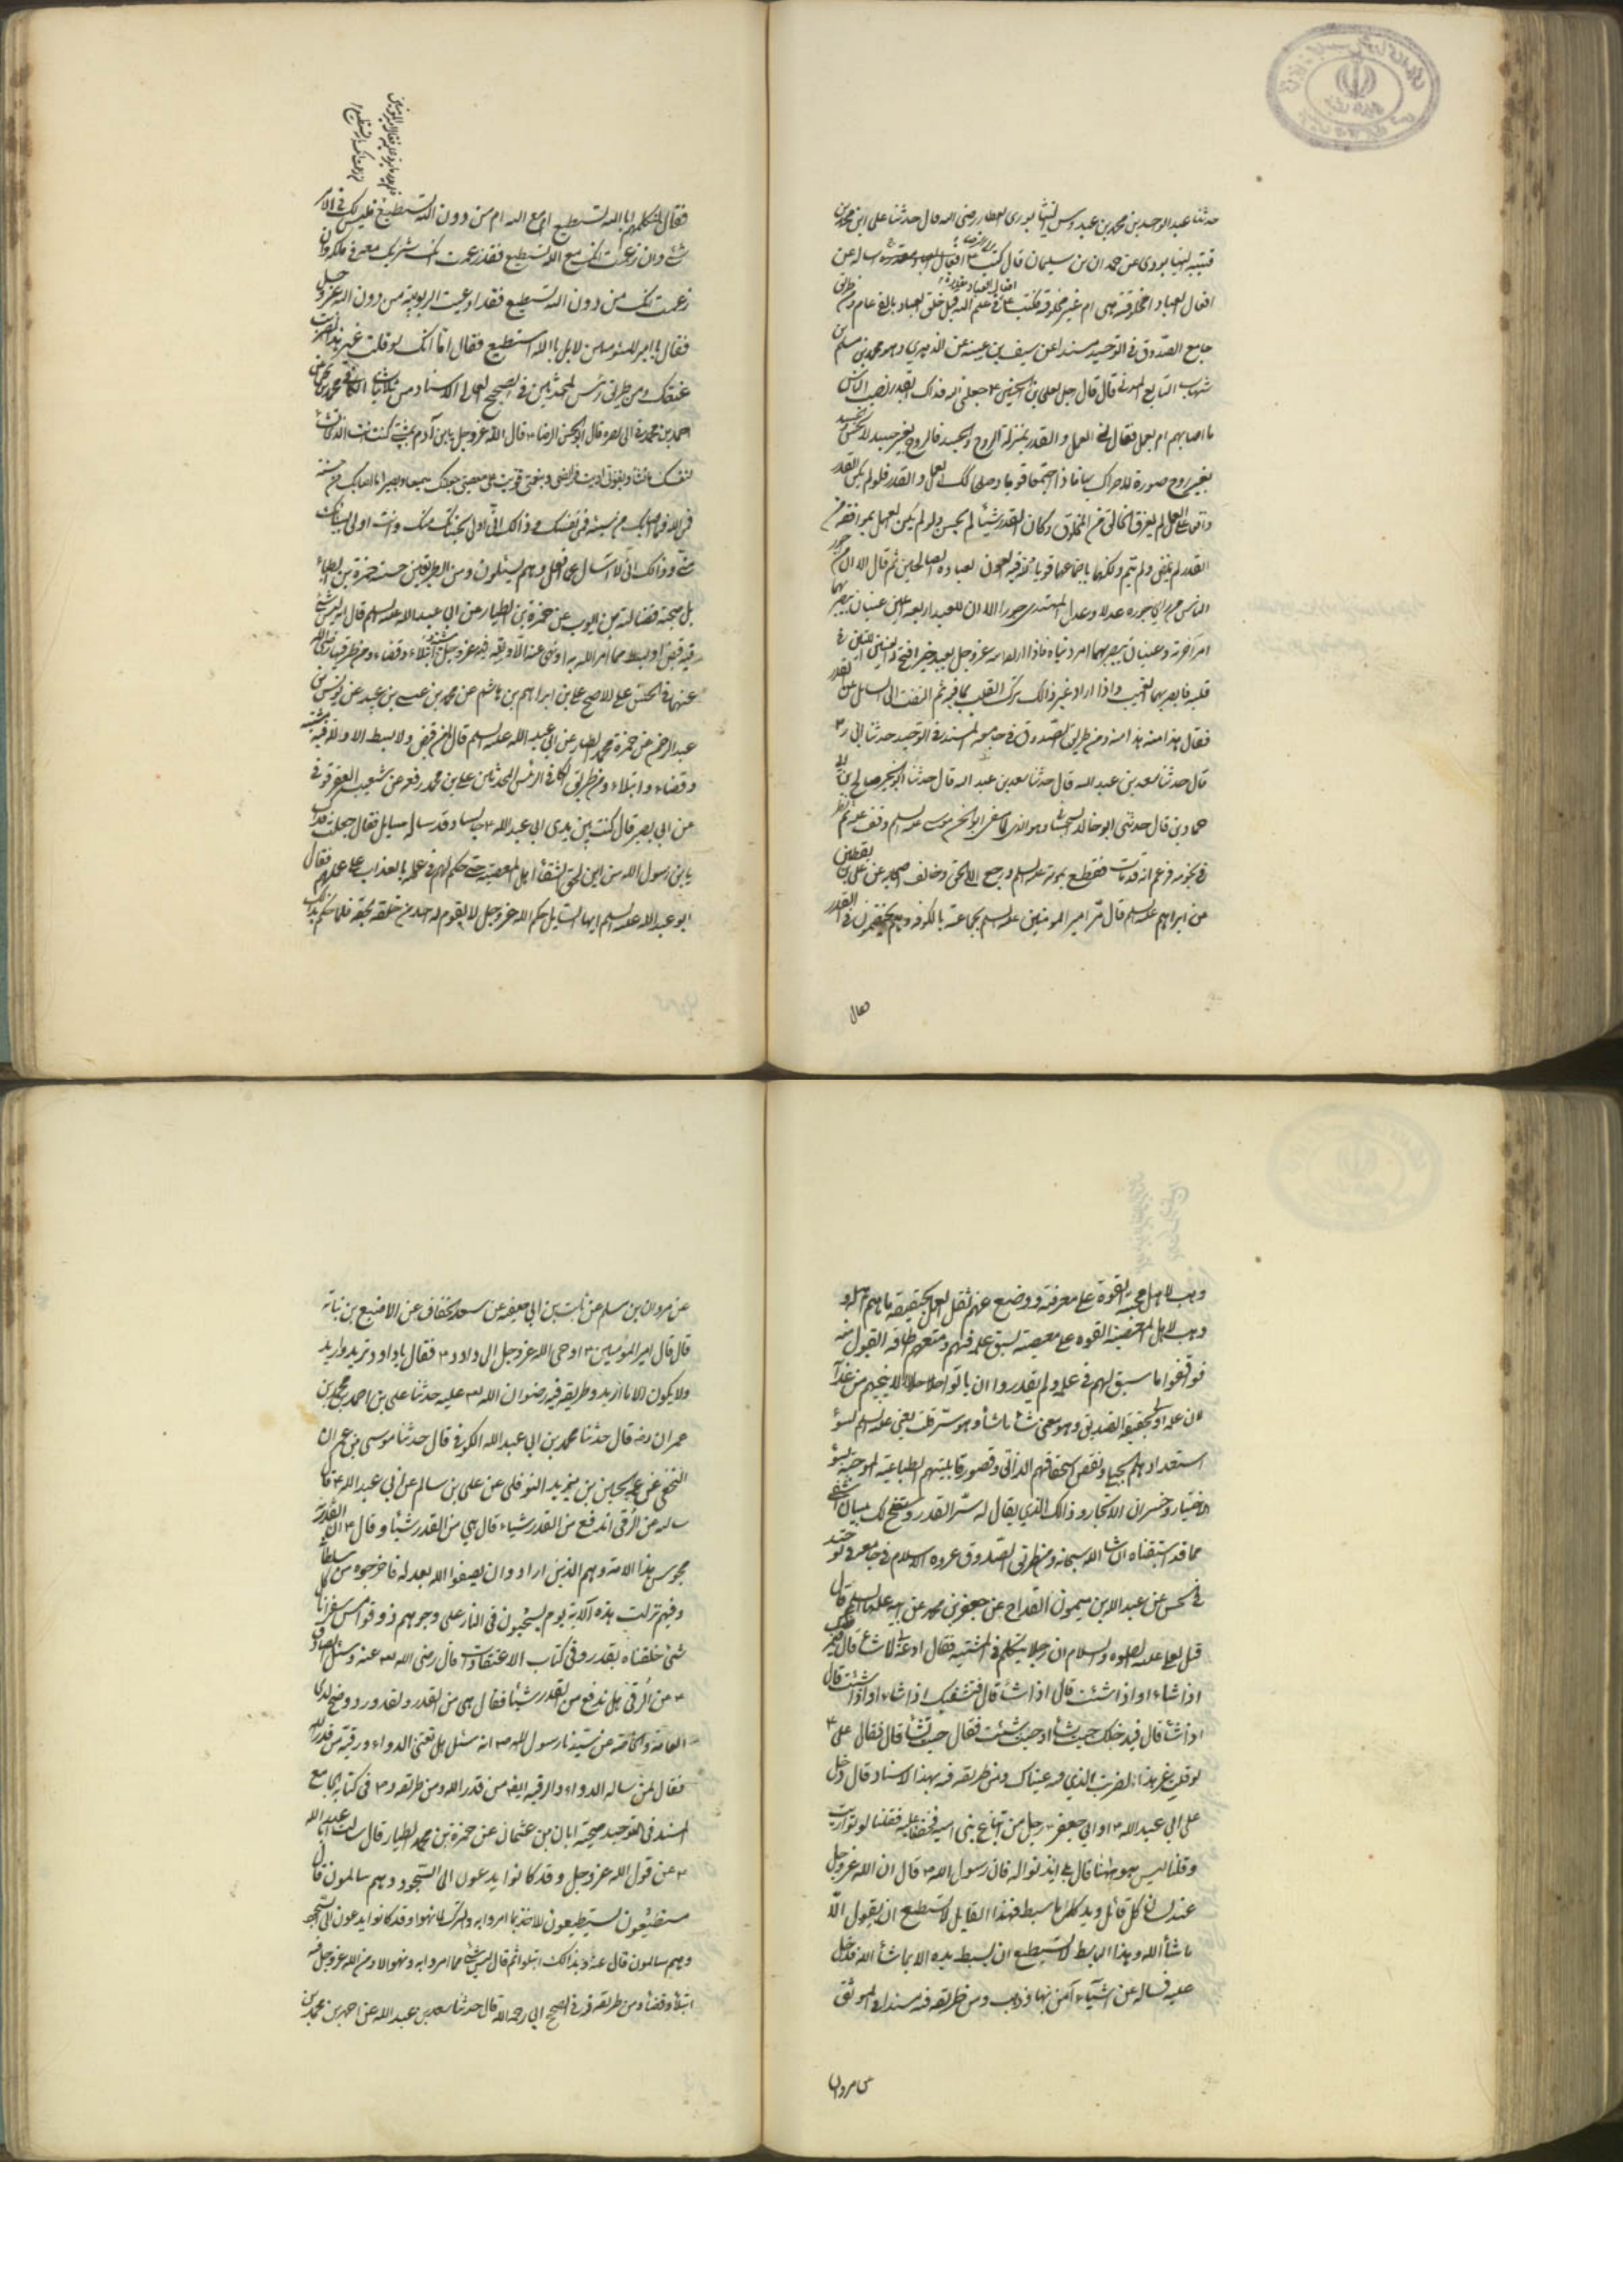 حدثنا عبد الواحد بن محمد بن عبدوس النيشابوري العطار رضي الله قال حدثنا علي ابن محمد بن
قتيبة النيشابوري عن حمدان بن سليمان قال كتبت الى الرضا ۴ اساله عن
افعال العباد امخلوقة هي ام غير مخلوقة فكتب ۴ افعال العباد مقدرة في علم الله قبل خلق العباد بالفي عام ومن طريق
جامع الصدوق في التوحيد مسندا عن سيف بن عيينة عن الزهري وهو محمد بن مسلم بن
شهاب التابع المدني قال قال رجل لعلي بن الحسين ۴ جعلني الله فداك ابقدر يصيب الناس
ما اصابهم ام بعمل فقال ان العمل والقدر بمنزلة الروح والجسد فالروح بغير جسد لا تحس والجسد
بغير روح صورة لا حراك بها فاذا اجتمعا قويا وصلحا كذلك العمل والقدر فلو لم يكن القدر
واقعا على العمل لم يعرف الخالق من المخلوق وكان القدر شيئا لم يحس ولو لم يكن العمل بموافقة من
القدر لم يمض ولم يتم ولكنهما باجتماعهما قويا ولله فيه العون لعباده الصالحين ثم قال الا ان من اجور
الناس من راى جوره عدلا وعدل المهتدي جورا الا ان للعبد اربعة اعين عينان يبصر بهما
امر اخرته وعينان يبصر بهما امر دنياه فاذا اراد الله عز وجل بعبد خيرا فتح له العينين اللتين في
قلبه فابصر بهما الغيب واذا اراد غير ذلك ترك القلب بما فيه ثم التفت الى السائل عن القدر
فقال هذا منه هذا منه ومن طريق الصدوق في جامعه المسند في التوحيد حدثنا ابي ر۳
قال حدثنا سعد بن عبد الله قال حدثنا سعد بن عبد الله قال حدثنا ابو الخير صالح بن ابي
حماد بن قال حدثني ابو خالد السجستاني وهو الذي لما مضى ابو الحسن موسى عليه السلام وقف عليه ثم نظر
في نجومه فزعم انه قد مات فقطع بموته عليه السلام ورجع الى الحق وخالف اصحابه عن علي بن يقطين
عن ابراهيم عليه السلام قال مر امير المومنين عليه السلم بجماعة بالكوفه وهم يختصمون في القدر
فقال
فقال لمتكلمهم ابالله تستطيع ام مع الله ام من دون الله تستطيع فليس لك في الامر
شئ وان زعمت انك مع الله تستطيع فقد زعمت انك شريك معه في ملكه وان
زعمت انك من دون الله تستطيع فقد ادعيت الربوبية من دون الله عز وجل
فقال يا امير المؤمنين لا بل بالله استطيع فقال اما انك لو قلت غير هذا لضربت
عنقك ومن طريق رئيس المحدثين في الصحيح العالي الاسناد من ثلاثيات الكافي محمد بن يحيى عن
احمد بن محمد بن ابي نصر قال قال ابو الحسن الرضا ۴ قال الله عز وجل يا بن آدم بمشيتي كنت انت الذي تشاء
لنفسك ما تشاء وبقوتي اديت فرائضي وبنعمتي قويت على معصيتي جعلتك سميعا بصيرا ما اصابك من حسنة
فمن الله وما اصابك من سيئة فمن نفسك وذلك اني اولى بحسناتك منك وانت اولى بسيئاتك
مني وذلك اني لا اسأل عما افعل وهم يسئلون ومن الطريقين حسنه حمزة بن الطيار
بل صحيحة فضالة بن ايوب عن حمزة بن الطيار عن ابي عبد الله عليه السلم قال انه ليس شئ
فيه قبض او بسط مما امر الله به او نهى عنه الا وفيه لله عز وجل ابتلاء وقضاء ومن طريقهما رضي الله
عنهما في الحسن على الاصح علي بن ابراهيم بن هاشم عن محمد بن عيسى بن عبيد عن يونس بن
عبد الرحمن عن حمزة بن محمد الطيار عن ابي عبد الله عليه السلم قال ما من قبض ولا بسط الا ولله فيه مشية
وقضاء وابتلاء ومن طريق الكافي لرئيس المحدثين علي بن محمد رفعه عن شعيب العقرقوفي
عن ابي بصير قال كنت بين يدي ابي عبد الله ۴ جالسا وقد ساله سايل فقال جعلت فداك
يا بن رسول الله من اين لحق الشقاء اهل المعصية حتى حكم لهم في علمه بالعذاب على عملهم فقال
ابو عبد الله عليه السلم ايها السايل حكم الله عز وجل لا يقوم له احد من خلقه بحقه فلما حكم بذلك
وهب لاهل محبته القوة على معرفته ووضع عنهم ثقل العمل بحقيقة ما هم اهله و
وهب لاهل المعصية القوه على معصيته لسبق علمه فيهم ومنعهم اطاقة القبول منه
فواقعوا ما سبق لهم في علمه ولم يقدروا ان ياتوا حالا تنجيهم من عذابه
لان علمه اولى بحقيقة التصديق وهو معنى شاء ما شاء وهو سره قلت يعني عليه السلم لسوء
استعدادهم لسجيا ونقص استحقاقهم الذاتي وقصور قابليتهم الطباعية الموجبة لسوء
الاختيار وخسران الاتجار وذلك الذي يقال له سر القدر وستضح لك بيان الشافي
مما قد استبقناه ان شاء الله سبحانه ومن طريق الصدوق عروه الاسلام في جامعه في توحيد
في الحسن عن عبد الله بن ميمون القداح عن جعفر بن محمد عن ابيه عليهما السلام قال
قيل لعلي عليه الصلوه والسلام ان رجلا يتكلم في المشية فقال ادعه لي قال
اذا شاء او اذا شئت قال اذا شاء قال فيشفيك اذا شاء او اذا شئت قال
اذا شاء قال فيدخلك حيث شاء او حيث شئت فقال حيث شاء قال فقال علي ۴
لو قلت غير هذا لضربت الذي فيه عيناك ومن طريقه فيه بهذا الاسناد قال دخل
على ابي عبد الله ۴ او ابي جعفر ۴ رجل من اتباع بني اميه فخفنا عليه فقلنا له لو تواريت
وقلنا ليس هو ههنا قال بلى ايذنوا له فان رسول الله ۳ قال ان الله عز وجل
عند لسان كل قائل ويد كل باسط فهذا القايل لا يستطيع ان يقول الا
ما شاء الله وهذا الباسط لا يستطيع ان يبسط يده الا بما شاء الله فدخل
عليه فساله عن اشياء آمن بها وذهب ومن طريقه فيه مسندا في الموثق
عن مروان
عن مروان بن مسلم عن ثابت بن ابي صفيه عن سعد الخفاف عن الاصبغ بن نباته
قال قال امير المؤمنين ۴ اوحى الله عز وجل الى داود ۴ فقال يا داود تريد واريد
ولا يكون الا ما اريد وطريقه فيه رضوان الله عليه حدثنا علي بن احمد بن محمد بن
عمران رضه قال حدثنا محمد بن ابي عبد الله الكوفي قال حدثنا موسى بن عمران
النخعي عن عمه الحسين بن يزيد النوفلي عن علي بن سالم عن ابي عبد الله ۴ قال
سالته عن الرقى اتدفع من القدر شياء قال هي من القدر شيئا وقال ۴ ان القدرية
مجوس هذا الامة وهم الذين ارادوا ان يصفوا الله بعدله فاخرجوه من سلطانه
وفيهم نزلت هذه الآية يوم يسحبون في النار على وجوههم ذوقوا مس سقر انا كل
شئ خلقناه بقدر وفي كتاب الاعتقادات قال رضي الله عنه وسئل الصادق
۴ عن الرقى هل تدفع من القدر شيئا فقال هي من القدر ولقد ورد وصح لدى
العامة والخاصة عن سيدنا رسول الله ۳ انه سئل هل يغني الدواء ورقية من قدر الله
فقال لمن ساله الدواء والرقية ايضا من قدر الله ومن طريقه ر۳ في كتابه الجامع
المسند في التوحيد صحيحة ابان بن عثمان عن حمزة بن محمد الطيار قال سالت ابا عبد الله
۴ عن قول الله عز وجل وقد كانوا يدعون الى السجود وهم سالمون قال
مستطيعون يستطيعون للاخذ بما امروا به والترك لما نهوا وقد كانوا يدعون الى السجود
وهم سالمون قال عنه وبذلك ابتلوا ثم قال ليس شئ مما امروا به ونهوا الا ومن الله عز وجل فيه
ابتلاء وقضاء ومن طريقه فيه في الصحيح ابي رحمه الله قال حدثنا سعد بن عبد الله عن احمد بن محمد بن